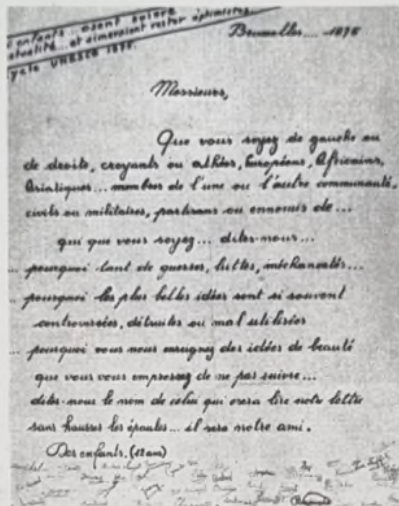 enfants... osent suivre
et aimeraient rester optimistes.
UNESCO 1975.
Bruxelles.... 1975
Messieurs,
Que vous soyez de gauche ou
de droite, croyants ou athées, Européens, Africains,
Asiatiques... membres de l'une ou l'autre communauté,
civils ou militaires, partisans ou ennemis de...
qui que vous soyez... dites-nous...
... pourquoi tant de guerres, luttes, méchancetés...
... pourquoi les plus belles idées sont si souvent
controversées, détruites ou mal utilisées
... pourquoi vous nous enseignez des idées de beauté
que vous vous empressez de ne pas suivre...
dites-nous le nom de celui qui osera lire notre lettre
sans hausser les épaules... il sera notre ami.
Des enfants. (12 ans)